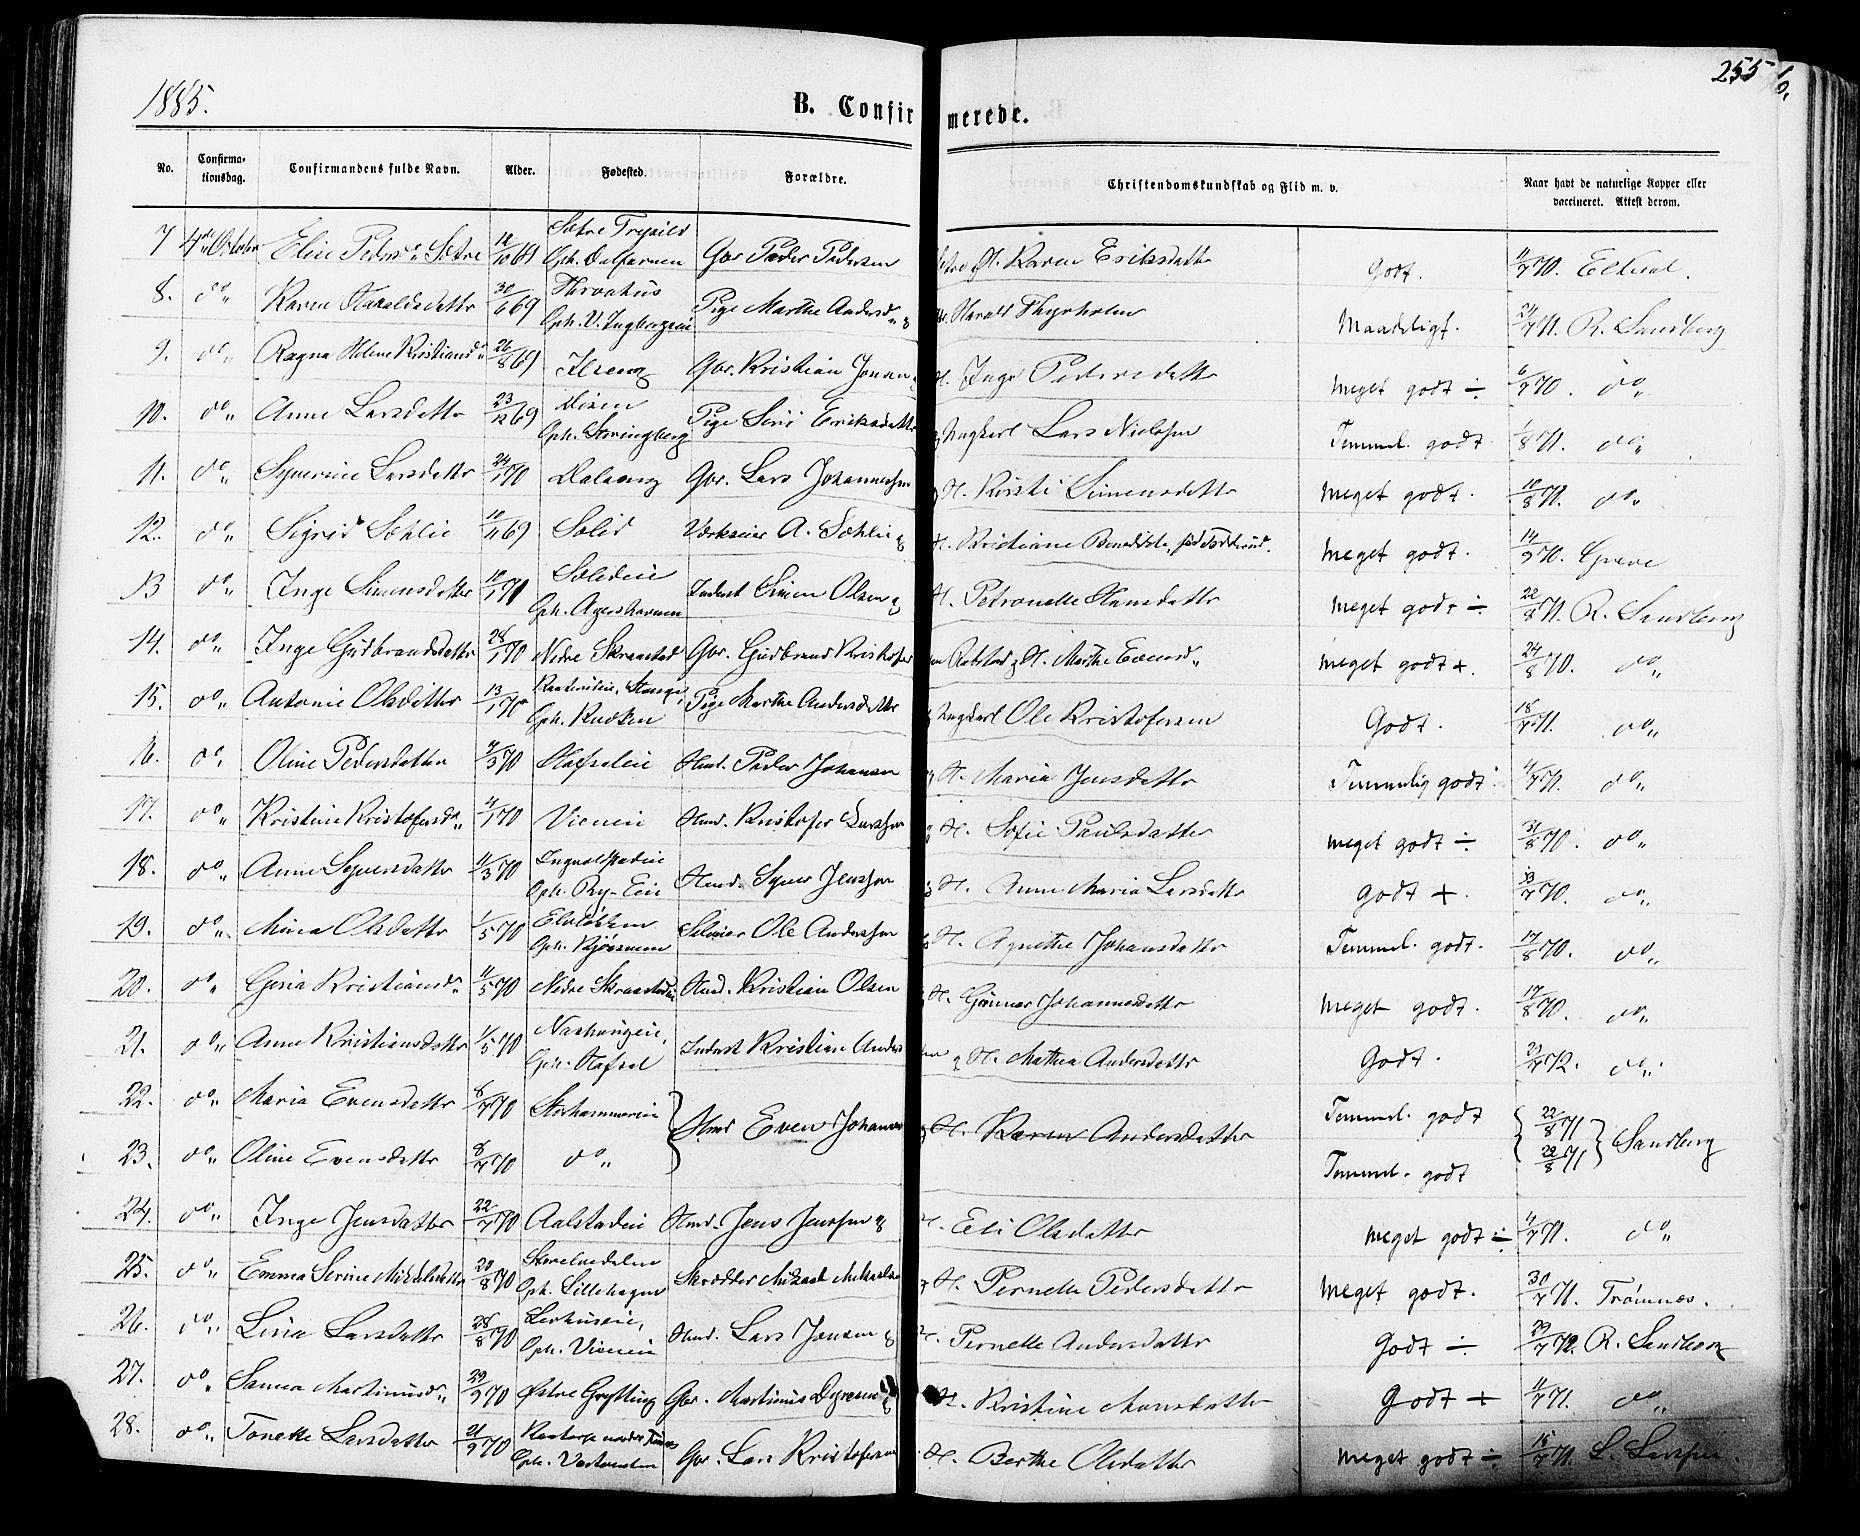 1885.
255
B. Confirmerede.
No. Confirmationsdag. Confirmandens fulde Navn. Alder. Fødested. Forældre. Christendomskundskab og Flid m. v. Naar havt de naturlige Kopper eller vaccineret. Attest derom.
7 4de October Eline Peders. Sætre 12/10 69 Sætre Trysild Oph. Gbr Peder Pedersen Sætre & H. Karen Eriksdatter Godt. 11/7 70.
8. do Karen Haraldsdatter 30/6 69 Oph. V. Pige Marthe Andersd. & Harald Thyrholm Maadeligt. 24/7 71. R. Sandberg
9. do Ragna Helene Kristiansd. 26/8 69 Ilseng Gbr. Kristian Jonsen & H. Inge Pedersdatter Meget godt ÷ 6/7 70. do
10. do Anne Larsdatter 23/12 69 Disen Oph. Pige Siri Eriksdatter & Ungkarl Lars Nielsen Temmel. godt 1/8 71. do
11. do Synerine Larsdatter 24/1 70 Dalseng Gbr. Lars Johannessen & H. Kirsti Simensdatter Meget godt. 10/8 71. do
12. do Sigrid Sæhlie 10/11 69 Sælid Værkseier A. Sæhlie & H. Kristiane Benedikte, født Meget godt. 14/9 70. Greve
13 do Inge Simensdatter 10/1 70 Sælideie Oph. Inderst Simen Olsen & H. Petronelle Hansdatter Meget godt ÷ 22/8 71. R. Sandberg
14. do Inge Gudbrandsdatter 28/1 70 Nedre Skramstad Gbr. Gudbrand Kristofersen & H. Marthe Evensd. Meget godt +. 24/8 70. do
15. do Antonie Olsdatter 13/1 70 Stange, Oph. Pige Marthe Andersdatter & Ungkarl Ole Kristofersen Godt. 18/7 71. do
16. do Oline Pedersdatter 4/3 70 Hafsaleie Hmd. Peder Johansen & H. Maria Jensdatter Temmelig godt 11/7 71. do
17. do Kristine Kristofersd. 4/1 70 Vieneie Hmd. Kristofer Larssen & H. Sofie Paulsdatter Meget godt ÷ 31/8 70. do
18. do Anne Syversdatter 11/3 70 Oph. Ry-Eie Hmd. Syver Jenssen & H. Anne Maria Larsdatter Godt +. 13/7 70. do
19. do Mina Olsdatter 1/5 70 Oph. Ole Anderssen & H. Agnethe Johansdatter Temmel. godt. 17/8 70. do
20. do Gina Kristiansd. 11/5 70 Nedre Skramstadeie Hmd. Kristian Olsen & H. Gunnor Johannesdatter Meget godt. 17/8 70. do
21. do Anne Kristiansdatter 1/5 70 Oph. Hafsal Inderst Kristian Andersen & H. Mathea Andersdatter Godt. 23/7 72. do
22. do Maria Evensdatter 8/7 70 Storhammereie Hmd Even Johansen & H. Karen Andersdatter Temmel. godt 22/8 71 Sandberg
23. do Oline Evensdatter 8/7 70 do Temmel. godt 22/8 71
24. do Inge Jensdatter 22/7 70 Aalstadeie Hmd. Jens Jenssen & H. Eli Olsdatter Meget godt ÷ 11/7 71. do
25. do Emma Serine Mikkelsdatter 20/8 70 Oph. Lillehagen Skrædder Mikael Mikaelsen & H. Pernelle Pedersdatter Meget godt. 30/7 71. Trømnæs.
26. do Lina Larsdatter 28/8 70 Oph. Vieneie Hmd. Lars Jensen & H. Pernelle Andersdatter Godt ÷ 29/7 72. R. Sandberg
27. do Samea Martinusd. 29/9 70 Østre Grytting Gbr. Martinus & H. Kristine Monsdatter Godt + 11/7 71. do
28. do Tonette Larsdatter 21/9 70 Oph. Gbr. Lars Kristofersen H. Berthe Olsdatter Meget godt ÷ 15/7 71.